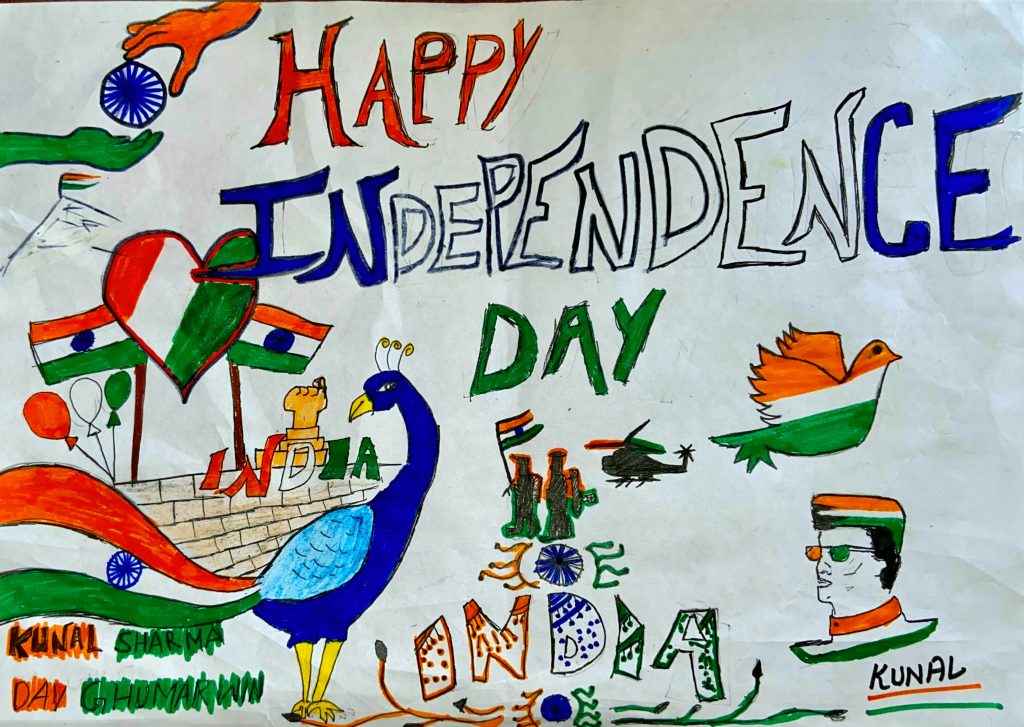 HAPPY
INDEPENDENCE
DAY
INDIA
INDIA
KUNAL SHARMA
DAV GHUMARWIN
KUNAL